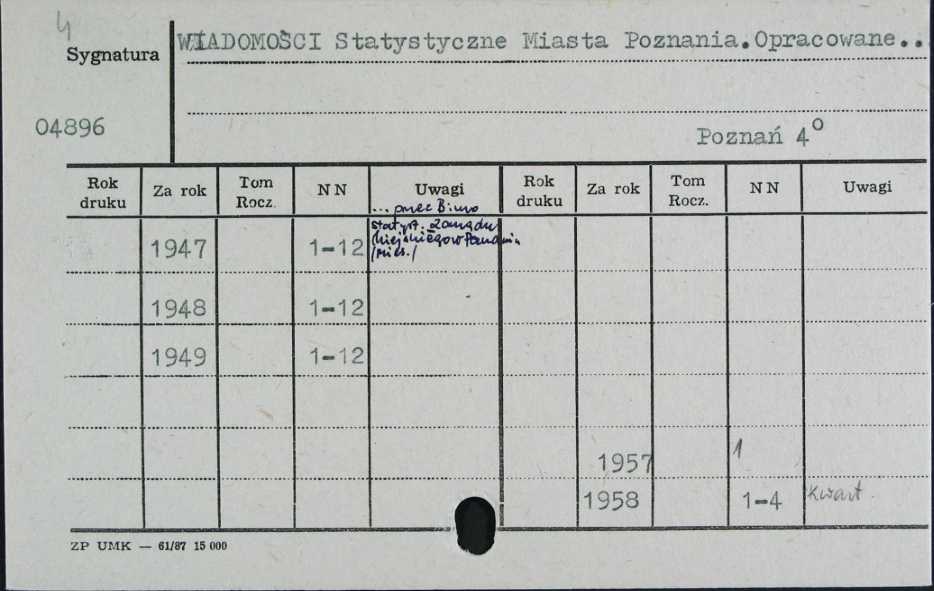 4
Sygnatura
WIADOMOŚCI Statystyczne Miasta Poznania.Opracowane..
04896
Poznań 4o
Rok druku Za rok Tom Rocz. N N Uwagi Rok druku Za rok Tom Rocz. N N Uwagi
... przez Biuro
statyst. Zarządu
Miejskiego w Poznaniu
1947 1-12 /Mies./
1948 1-12
1949 1-12
1957 1
1958 1-4 kwart.
ZP UMK — 61/87 15 000